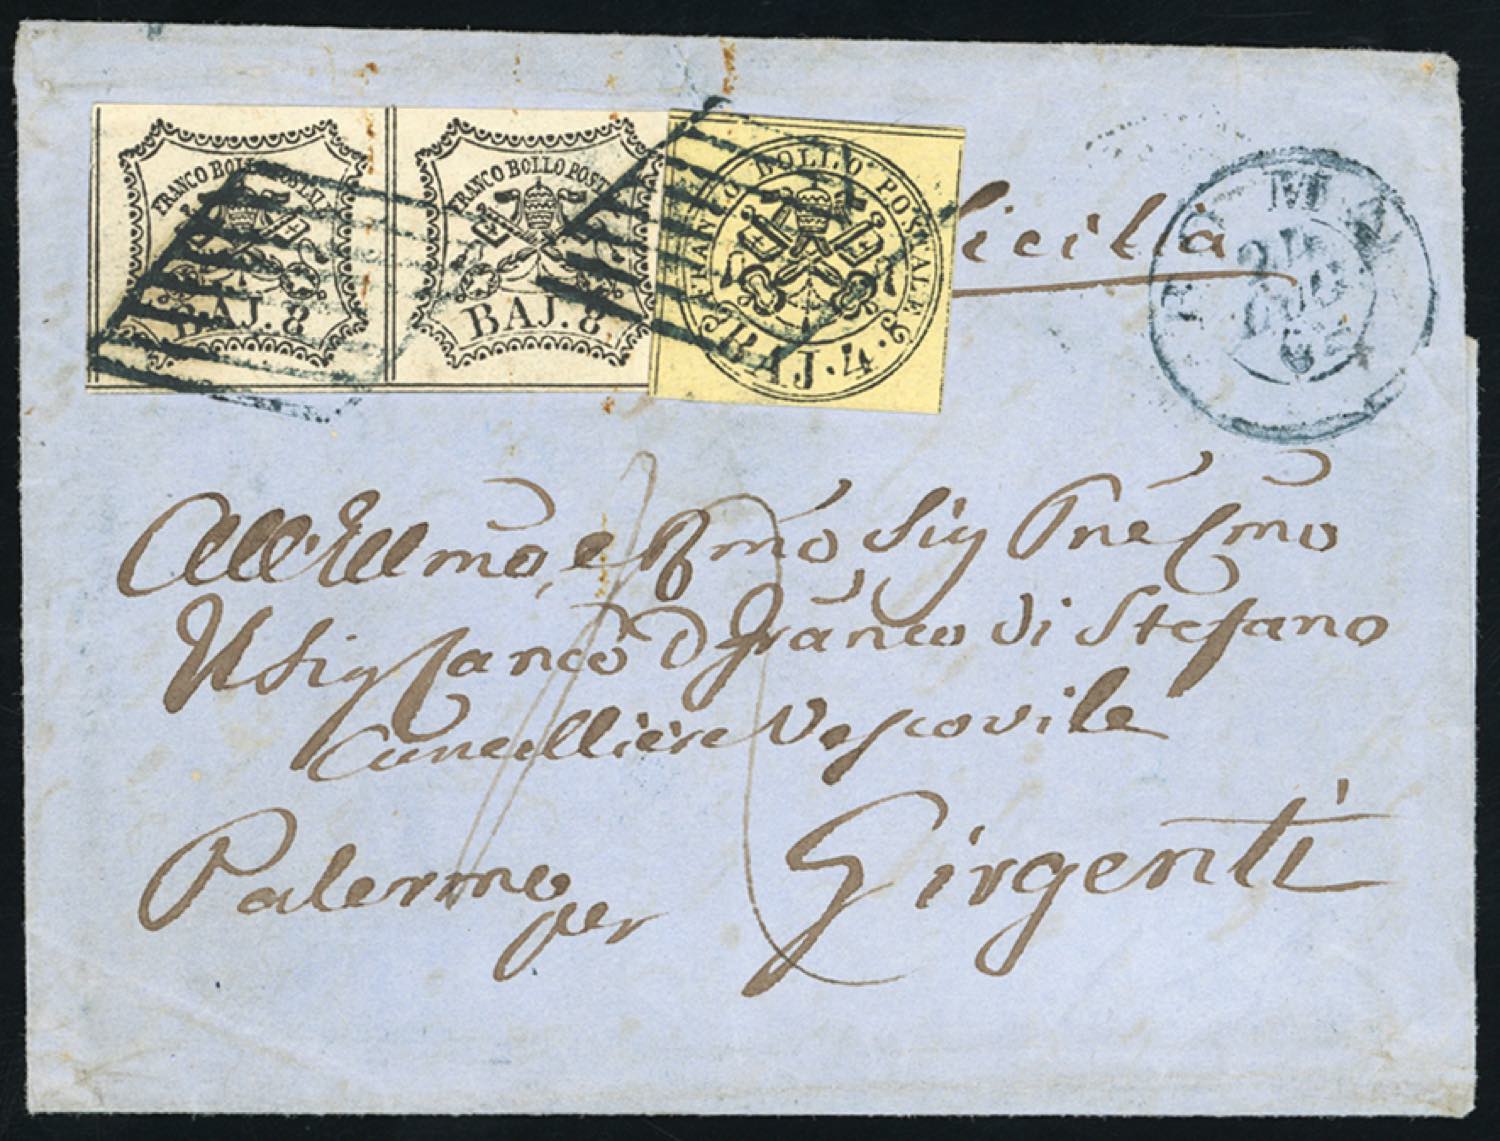 FRANCO BOLLO POSTALE
BAJ. 8
FRANCO BOLLO POSTALE
BAJ. 8
FRANCO BOLLO POSTALE
BAJ. 4
Sicilia
ROMA
All'Illmo, e Rmo Sig Pne
Il Sig Canco D Franco Di Stefano
Cancelliere Vescovile
Palermo per Girgenti